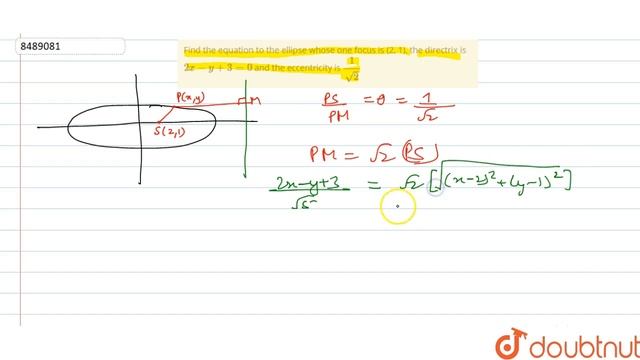 8489081
Find the equation to the ellipse whose one focus is (2, 1), the directrix is
2x − y + 3 = 0 and the eccentricity is 1/√2
P(x,y)
M
S(2,1)
PS/PM = e = 1/√2
PM = √2 (PS)
2x−y+3/√5 = √2 [√(x−2)²+(y−1)²]
doubtnut